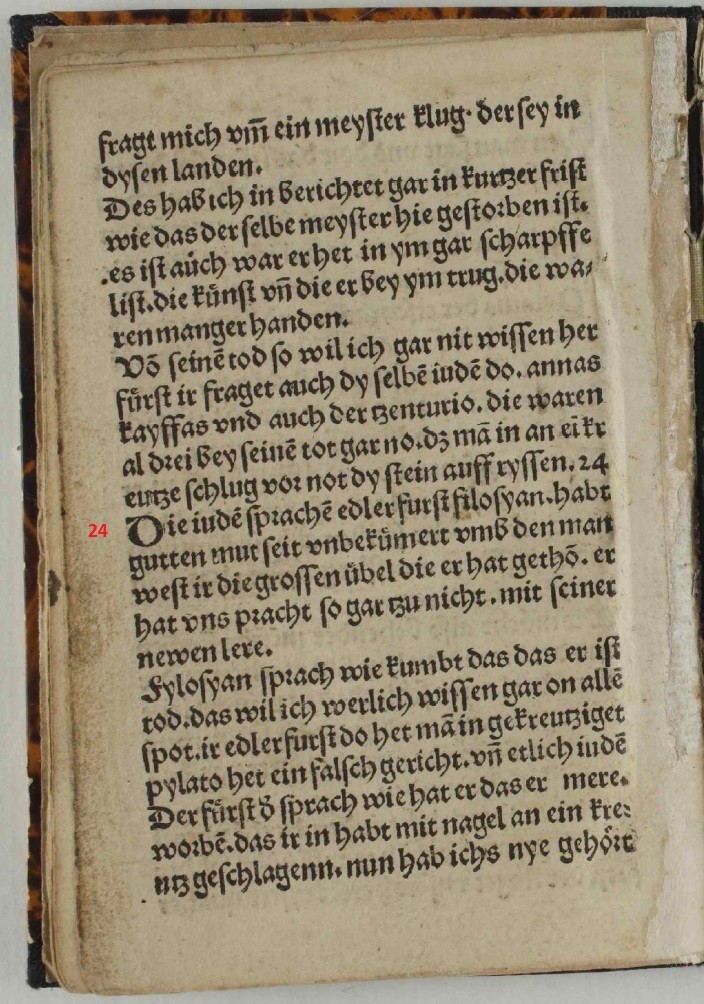 fragt mich vm̄ ein meyster klug· der sey in
dysen landen.
Des hab ich in berichtet gar in kurtzer frist
wie das der selbe meyster hie gestorben ist.
.es ist auch war er het in ym gar scharpffe
list.die künst vn̄ die er bey ym trug.die wa⸗
ren manger handen.
Vō seinē tod so wil ich gar nit wissen her
fürst ir fraget auch dy selbē iudē do. annas
kayffas vnd auch der tzenturio. die waren
al drei bey seinē tot gar no.dz mā in an ei kr
eutze schlug vor not dy stein auff ryssen. 24
24 Die iudē sprachē edler furst filosyan.habt
gutten mut seit vnbekümert vmb den man
west ir die grossen übel die er hat gethō. er
hat vns pracht so gar tzu nicht. mit seiner
newen lere.
Fylosyan sprach wie kumbt das das er ist
tod.das wil ich werlich wissen gar on allē
spot. ir edler furst do het mā in gekreutziget
pylato het ein falsch gericht.vn̄ etlich iudē
Der fürst d̄ sprach wie hat er das er mere.
worbē.das ir in habt mit nagel an ein kre⸗
utz geschlagenn. nun hab ichs nye gehört